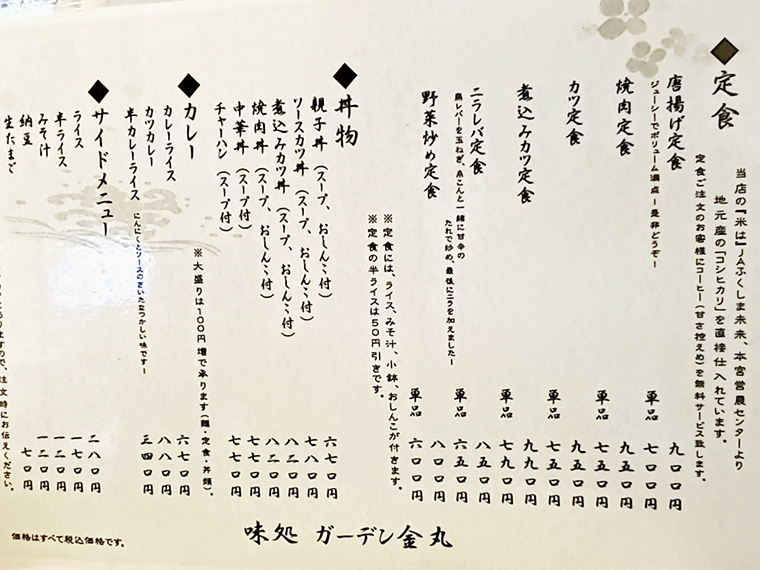 ◆定食
当店の『米は』JAふくしま未来、本宮営農センターより
地元産の「コシヒカリ」を直接仕入れています。
定食ご注文のお客様にコーヒー(甘さ控えめ)を無料サービス致します。
唐揚げ定食 九〇〇円
ジューシーでボリューム満点!是非どうぞ!
単品 七〇〇円
焼肉定食 九五〇円
単品 七五〇円
カツ定食 九五〇円
単品 七五〇円
煮込みカツ定食 九九〇円
単品 七九〇円
ニラレバ定食 八五〇円
鳥レバーを玉ねぎ、糸こんと一緒に甘辛の
たれで炒め、最後にニラを加えました!
単品 六五〇円
野菜炒め定食 八〇〇円
単品 六〇〇円
※定食には、ライス、みそ汁、小鉢、おしんこが付きます。
※定食の半ライスは50円引きです。
◆丼物
親子丼(スープ、おしんこ付) 六七〇円
ソースカツ丼(スープ、おしんこ付) 七八〇円
煮込みカツ丼(スープ、おしんこ付) 八二〇円
焼肉丼(スープ、おしんこ付) 八二〇円
中華丼(スープ付) 七七〇円
チャーハン(スープ付) 七七〇円
※大盛りは100円増で承ります(麺・定食・丼類)。
◆カレー
カレーライス 六七〇円
カツカレー 八八〇円
半カレーライス 三四〇円
にんにくとソースのきいたなつかしい味です!
◆サイドメニュー
ライス 二八〇円
半ライス 一七〇円
みそ汁 一二〇円
納豆 一二〇円
生たまご 七〇円
ますので、注文時にお伝えください。
味処 ガーデン金丸
価格はすべて税込価格です。